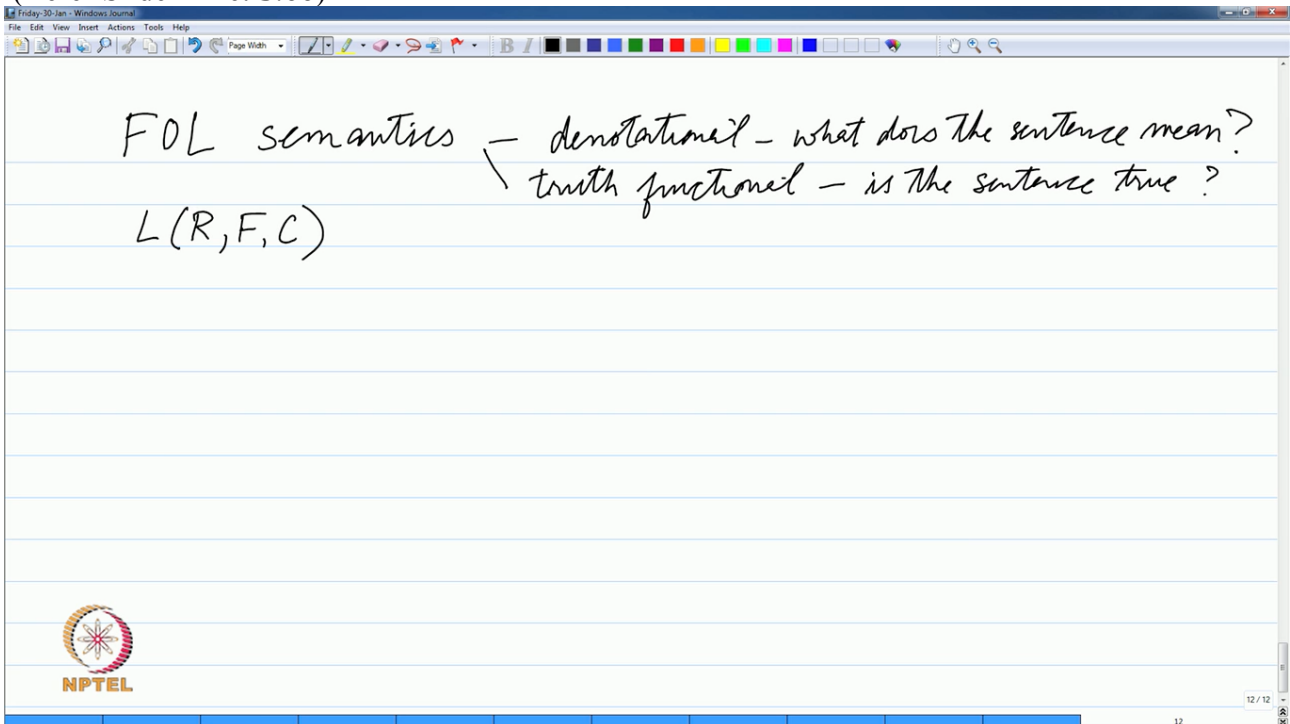 Friday-30-Jan - Windows Journal
File Edit View Insert Actions Tools Help
Page Width
B I
FOL semantics – denotational – what does the sentence mean?
truth functional – is the sentence true ?
L(R, F, C)
NPTEL
12 / 12
12